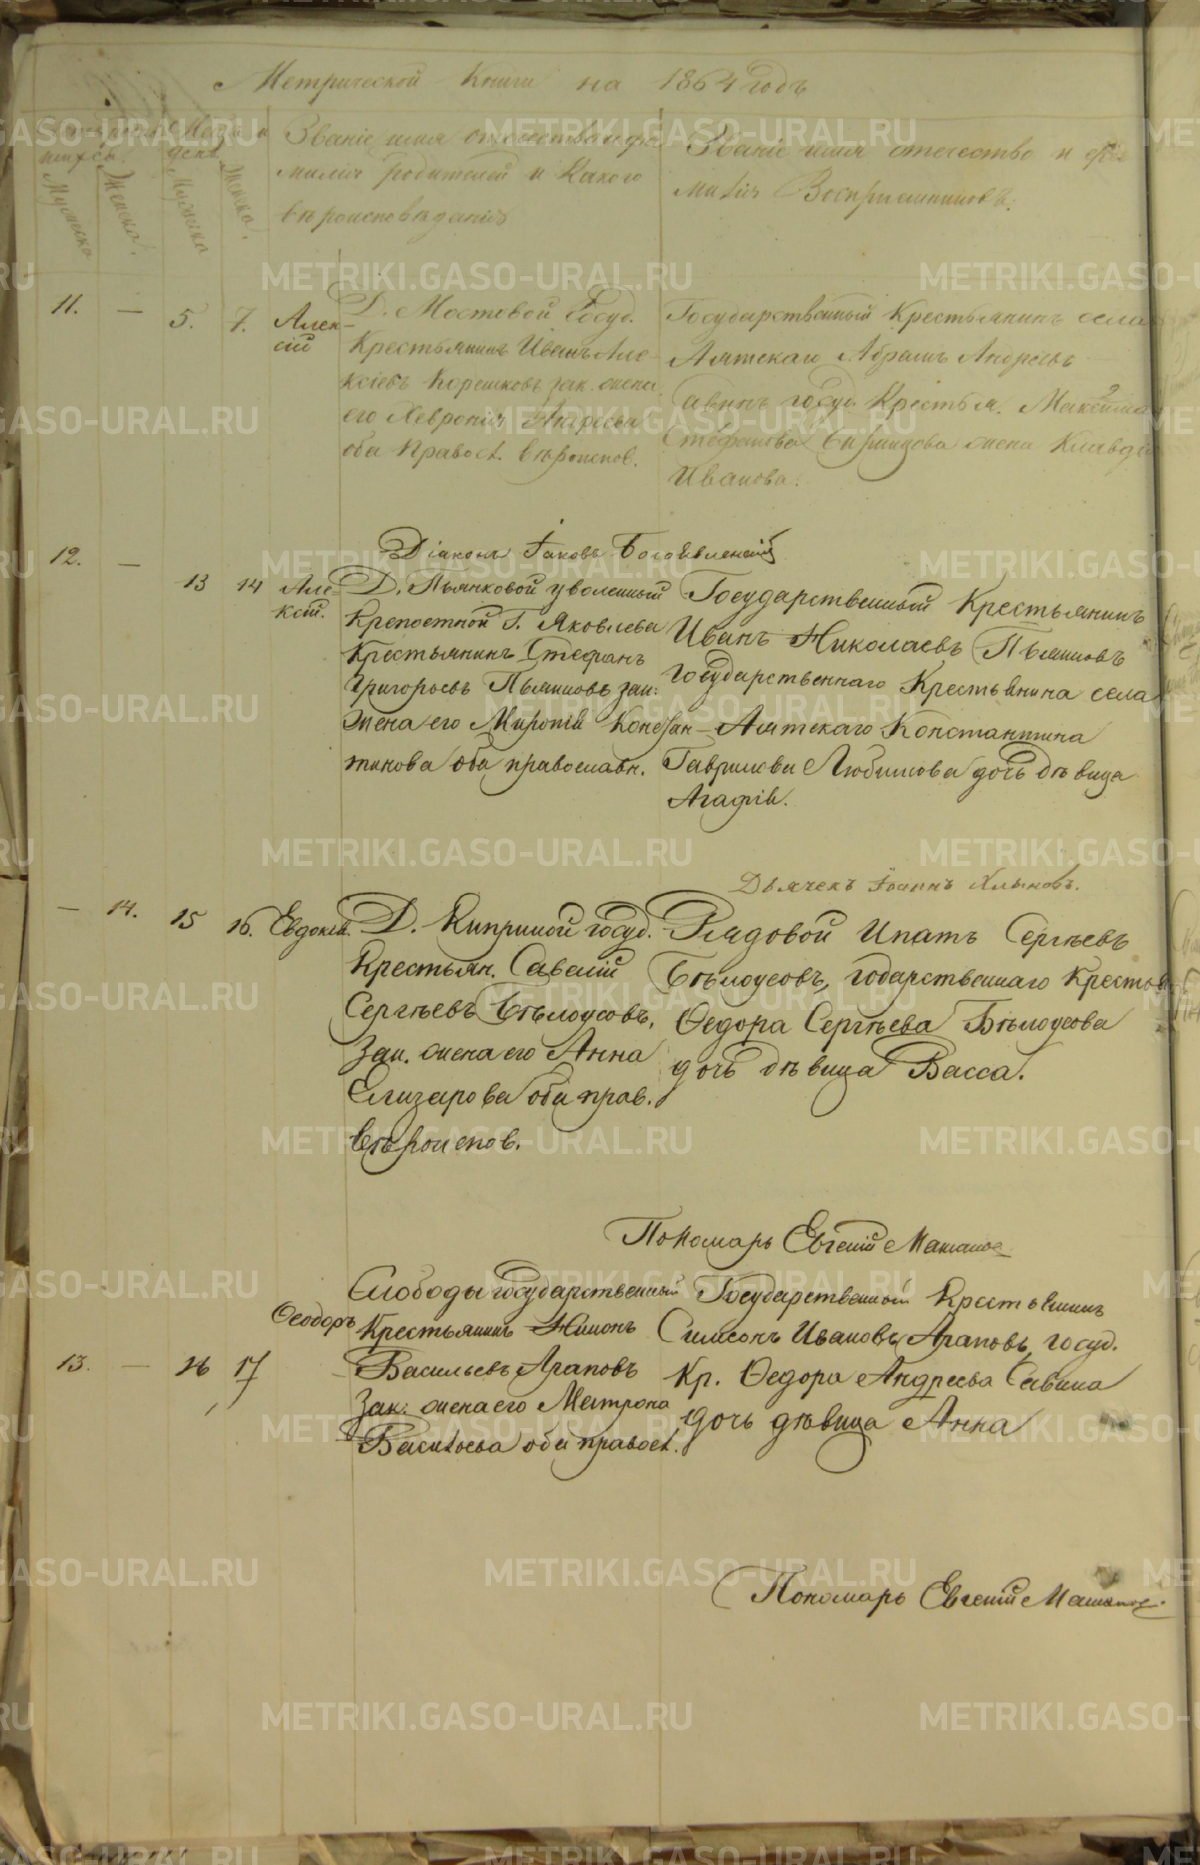 Метрической Книги на 1864 годъ
Званіе имя отчество и фа
милія родителей и Какого
вѣроисповѣданія
Званіе имя отечество и фа
милія Воспріемниковъ.
11. — 5. 7. Алек-
сій
Д. Мостовой Госуд.
Крестьянинъ Иванъ Але-
ксіевъ Корешковъ зак. жена
его Хевронія Андреева
оба Правосл. вѣроиспов.
Государственный Крестьянинъ села
Аятскаго Абрамъ Андреевъ
Савинъ госуд. Крестья. Максима
Стефанова жена Клавдія
Иванова.
Діаконъ Іаковъ Богоявленскій
12. — 13 14 Але-
ксій.
Д. Пьянковой уволенный
Крепостной Г. Яковлева
Крестьянинъ Стефанъ
Григорьевъ Пьянковъ зак:
жена его Миропія Констан-
тинова оба православн.
Государственный Крестьянинъ
Иванъ Николаевъ Пьянковъ
Государственнаго Крестьянина села
Аятскаго Константина
Гаврилова Любимова дочь дѣвица
Агафія.
Дьячекъ Іоаннъ Хлыновъ.
— 14. 15 16. Евдокія.
Д. Киприной госуд.
Крестьян. Савелій
Сергѣевъ Бѣлоусовъ,
Зак. жена его Анна
Елизарова оба прав.
вѣроиспов.
Рядовой Ипатъ Сергѣевъ
Бѣлоусовъ, годарственнаго Крестов
Ѳедора Сергѣева Бѣлоусова
дочь дѣвица Васса.
Пономарь Евгеній
13. — 16 17 Ѳеодоръ
Слободы государственный
Крестьянинъ
Васильевъ Агаповъ
Зак. жена его Матрона
Васильева оба правосл.
Государственный Крестьянинъ
Симеонъ Ивановъ Агаповъ, госуд.
Кр. Ѳедора Андреева Савина
дочь дѣвица Анна
Пономарь Евгеній
METRIKI.GASO-URAL.RU